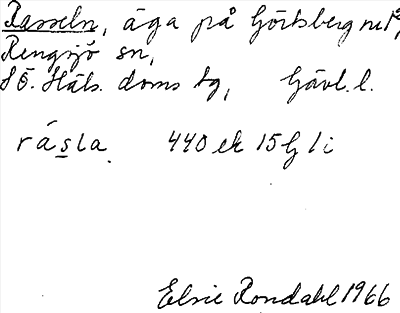 Rasseln, äga på Görtsberg nr 1²,
Rengsjö sn,
SÖ. Häls. doms tg, Gävl. l.
råsla. 440 ek 15 G 1 i
Elsie Rondahl 1966